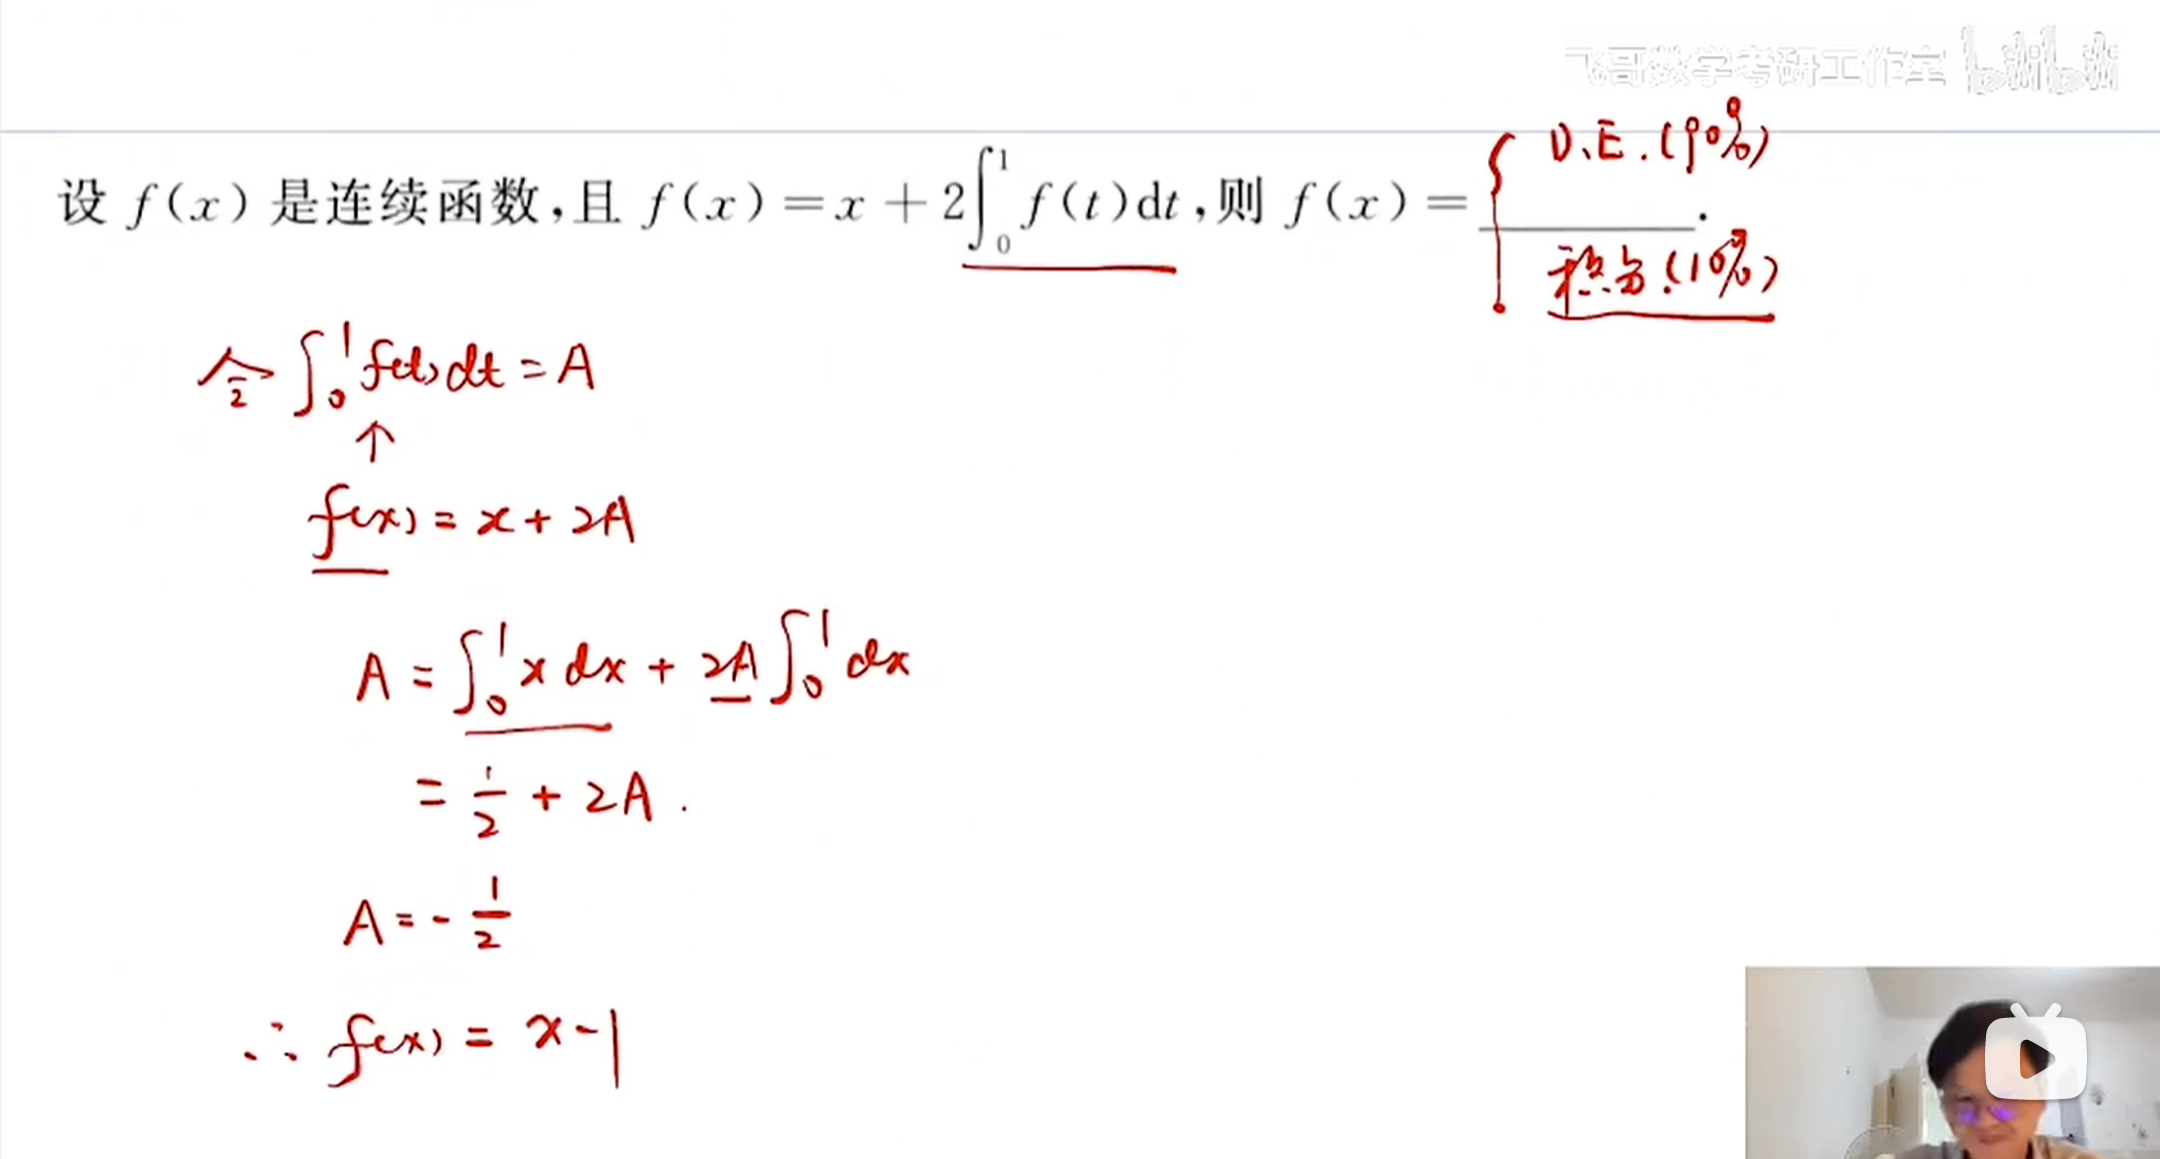 飞哥数学考研工作室 bilibili
D.E.(90%)
设 f(x) 是连续函数,且 f(x)=x+2∫₀¹f(t)dt,则 f(x)=______.
积分(10%)
令 ∫₀¹f(t)dt=A
↑
f(x)=x+2A
A=∫₀¹x dx+2A∫₀¹dx
=1/2+2A.
A=-1/2
∴ f(x)=x-1